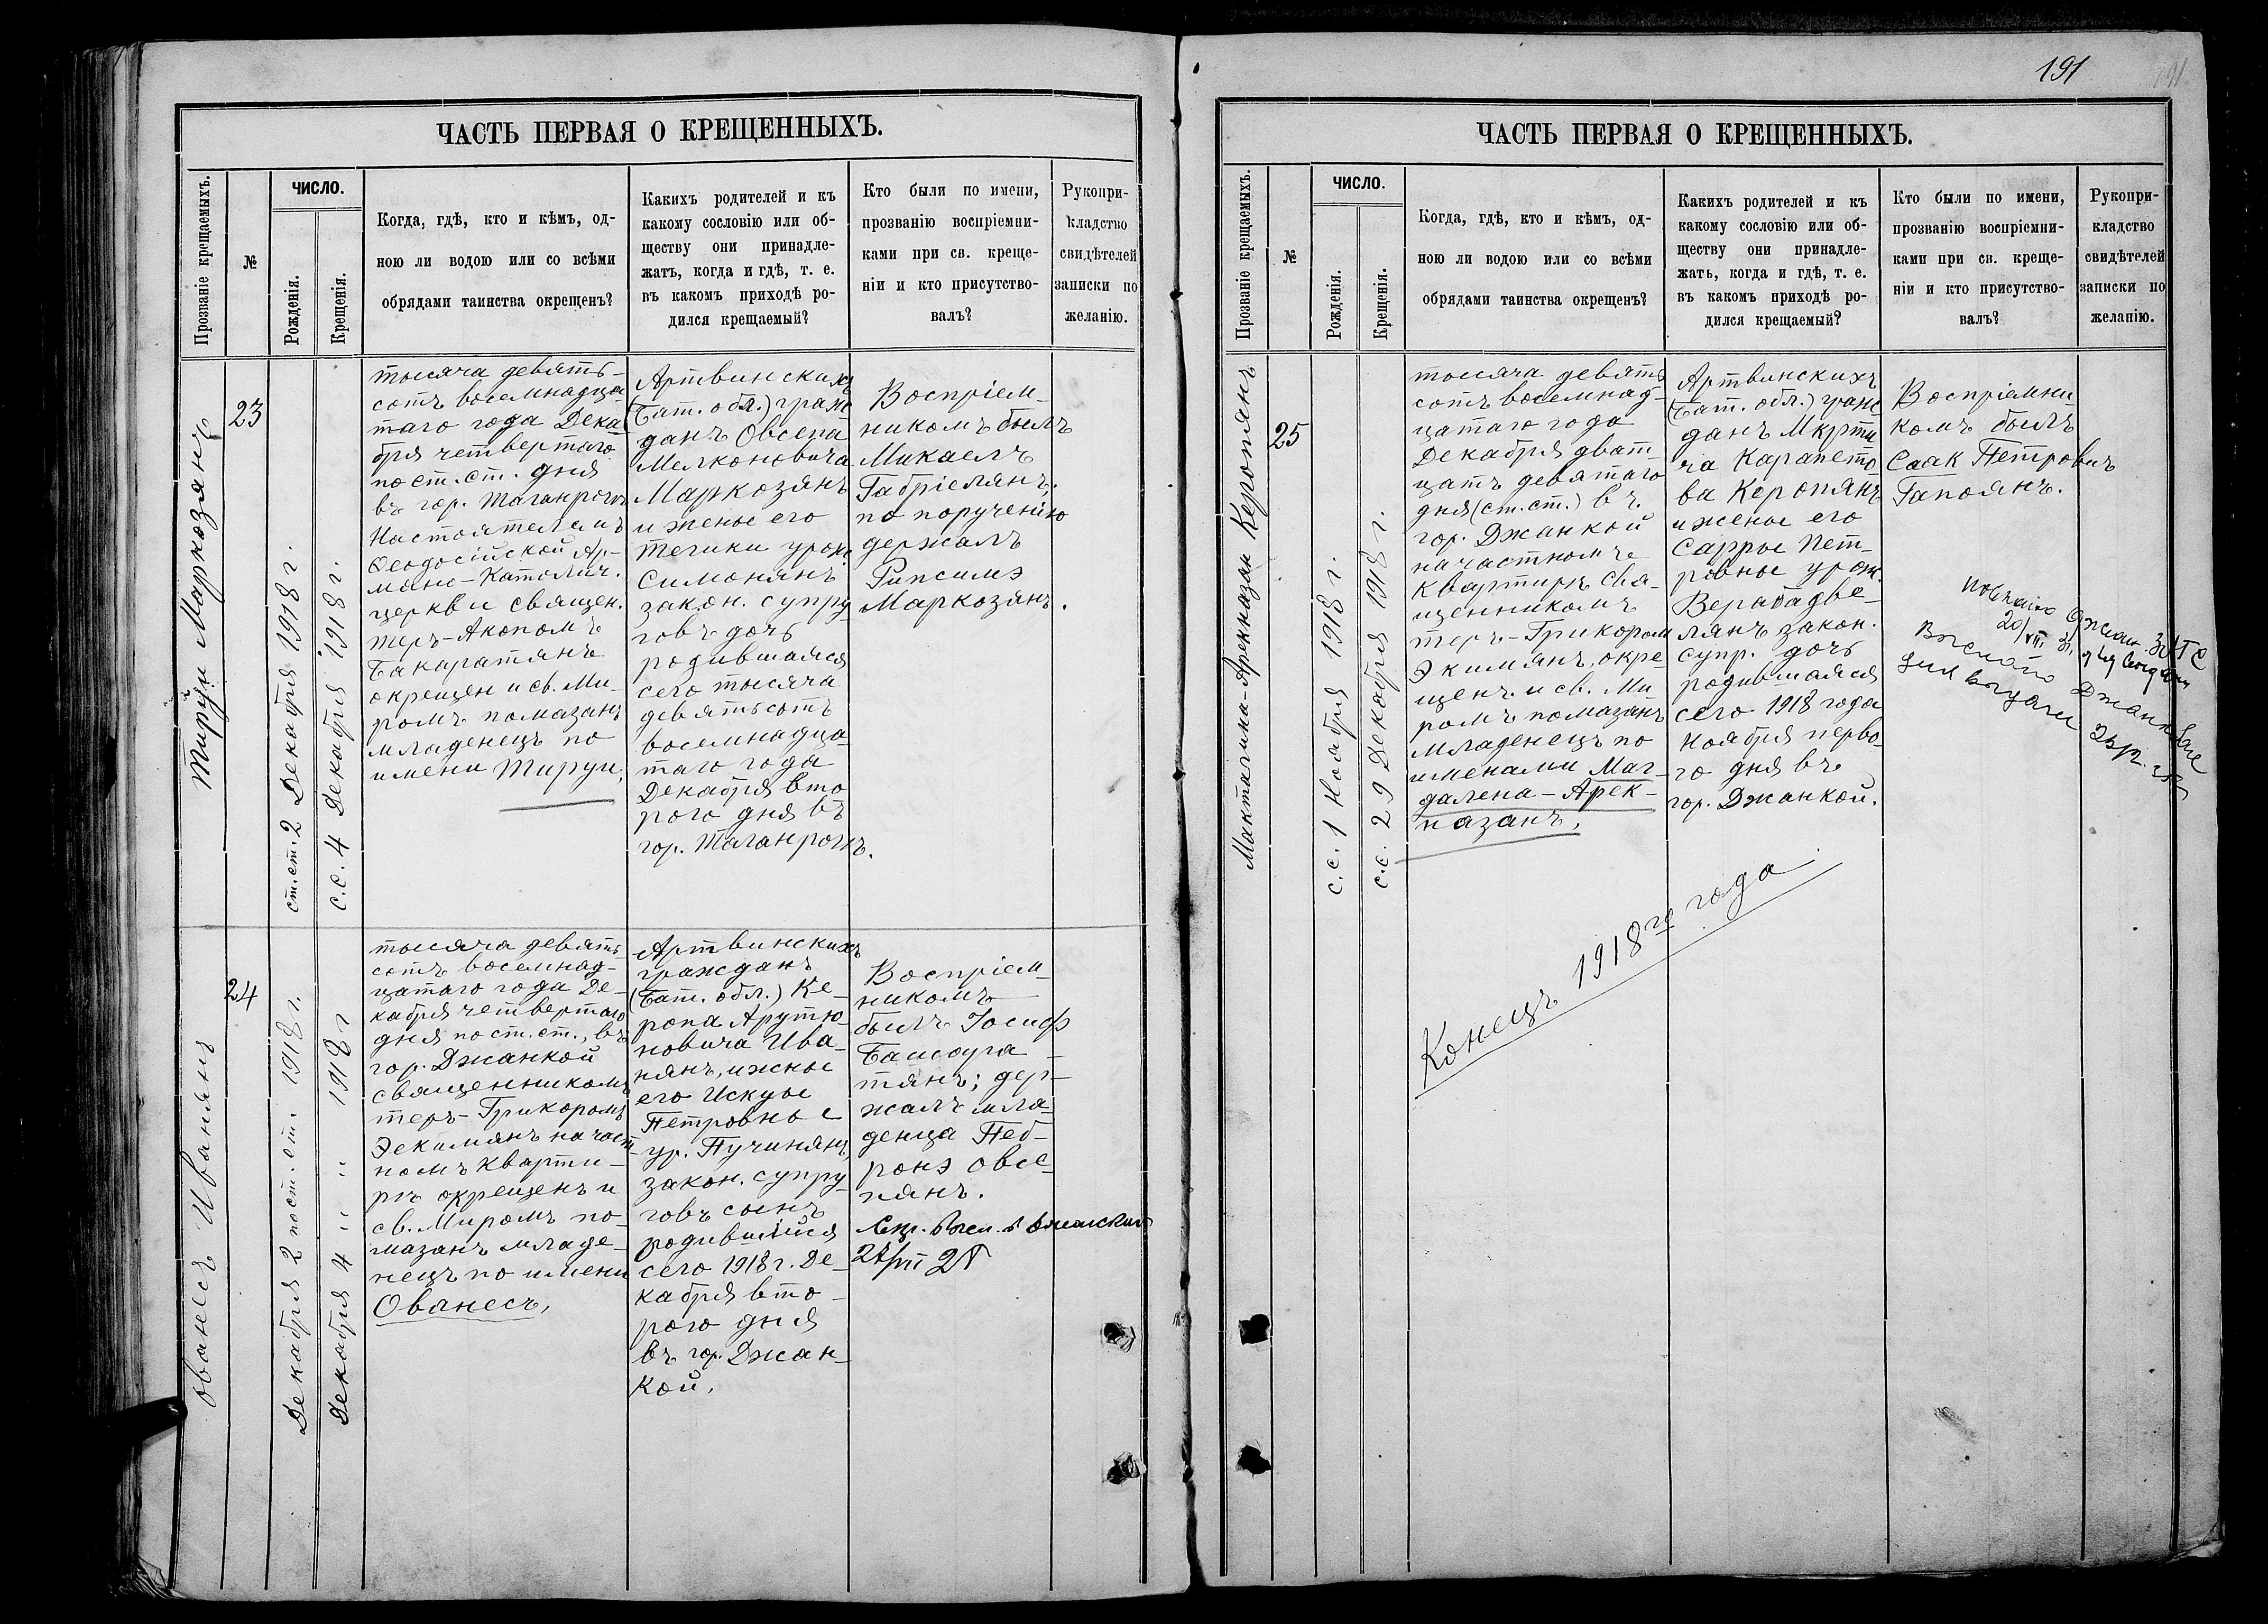 ЧАСТЬ ПЕРВАЯ О КРЕЩЕННЫХЪ.
Прозваніе крещаемыхъ.
№
ЧИСЛО.
Рожденія.
Крещенія.
Когда, гдѣ, кто и кѣмъ, од-
ною ли водою или со всѣми
обрядами таинства окрещенъ?
Какихъ родителей и къ
какому сословію или об-
ществу они принадле-
жатъ, когда и гдѣ, т. е.
въ какомъ приходѣ ро-
дился крещаемый?
Кто были по имени,
прозванію воспріемни-
ками при св. креще-
ніи и кто присутство-
валъ?
Рукопри-
кладство
свидѣтелей
записки по
желанію.
Тируи Маркозянъ
23
ст. ст. 2 Декабря 1918 г.
с.с. 4 Декабря 1918 г.
тысяча девять-
сотъ восемнадца
таго года Дека
бря четвертаго
по ст. ст. дня
въ гор. Таганрогѣ
Настоятелемъ
Ѳеодосійской Ар-
мяно-Католич.
церкви священ.
теръ-Акопомъ
Бакаратянъ
окрещен и св. Ми-
ромъ помазанъ
младенецъ по
имени Тируи,
Артвинскихъ
(Бат. обл.) граж
данъ Овсепа
Мелконовича
Маркозянъ
и жены его
Тегики урож
Симонянъ
закон. супру
говъ дочь
родившаяся
сего тысяча
девятьсотъ
восемнадца-
таго года
Декабря вто
рого дня въ
гор. Таганрогѣ.
Воспріем-
никомъ былъ
Микаелъ
Габріелянъ;
по порученію
держалъ
Рипсимэ
Маркозянъ.
Ованесъ Иванянъ
24
Декабря 2 по ст. ст. 1918 г.
Декабря 4 " " 1918 г
тысяча девять
сотъ восемнад-
цатаго года Де-
кабря четвертаго
дня по ст. ст., въ
гор. Джанкой
священникомъ
теръ-Грикоромъ
Экимянъ на част-
номъ кварти-
рѣ окрещенъ и
св. Миромъ по-
мазанъ младе-
нецъ по имени
Ованесъ,
Артвинскихъ
гражданъ
(Бат. обл.) Ке-
ропа Арутю-
новича Ива-
нянъ, и жены
его Искуы
Петровны
ур. Пучинянъ,
закон. супру-
говъ сынъ
родившійся
сего 1918 г. Де-
кабря вто-
рого дня
въ гор. Джан-
кой.
Воспріем-
никомъ
былъ Іосифъ
тянъ; дер-
жалъ мла-
денца Пеб-
ронэ Овсе-
пянъ.
191
ЧАСТЬ ПЕРВАЯ О КРЕЩЕННЫХЪ.
Прозваніе крещаемыхъ.
№
ЧИСЛО.
Рожденія.
Крещенія.
Когда, гдѣ, кто и кѣмъ, од-
ною ли водою или со всѣми
обрядами таинства окрещенъ?
Какихъ родителей и къ
какому сословію или об-
ществу они принадле-
жатъ, когда и гдѣ, т. е.
въ какомъ приходѣ ро-
дился крещаемый?
Кто были по имени,
прозванію воспріемни-
ками при св. креще-
ніи и кто присутство-
валъ?
Рукопри-
кладство
свидѣтелей
записки по
желанію.
Мактагина-Арекназан Керопянъ
25
с.с. 1 Ноября 1918 г.
с.с. 29 Декабря 1918 г.
тысяча девять
сотъ восемнад-
цатаго года
Декабря дват-
цать девятаго
дня (ст. ст.) въ
гор. Джанкой
на частномъ
квартирѣ свя-
щенникомъ
теръ-Грикором
Экимянъ, окре-
щенъ и св. Ми-
ромъ помазанъ
младенецъ по
именами Маг-
далена-Арек-
назанъ,
Артвинскихъ
(Бат. обл.) граж-
данъ Мкрти
ча Карапето
ва Керопянъ
и жены его
Сарры Пет-
ровны урож.
лянъ закон.
супр. дочь
родившаяся
сего 1918 года
Ноября перво-
го дня въ
гор. Джанкой.
Воспріемни-
комъ былъ
Саак Петрович
Гапоянъ.
20/VII
для выдачи
Конецъ 1918го года